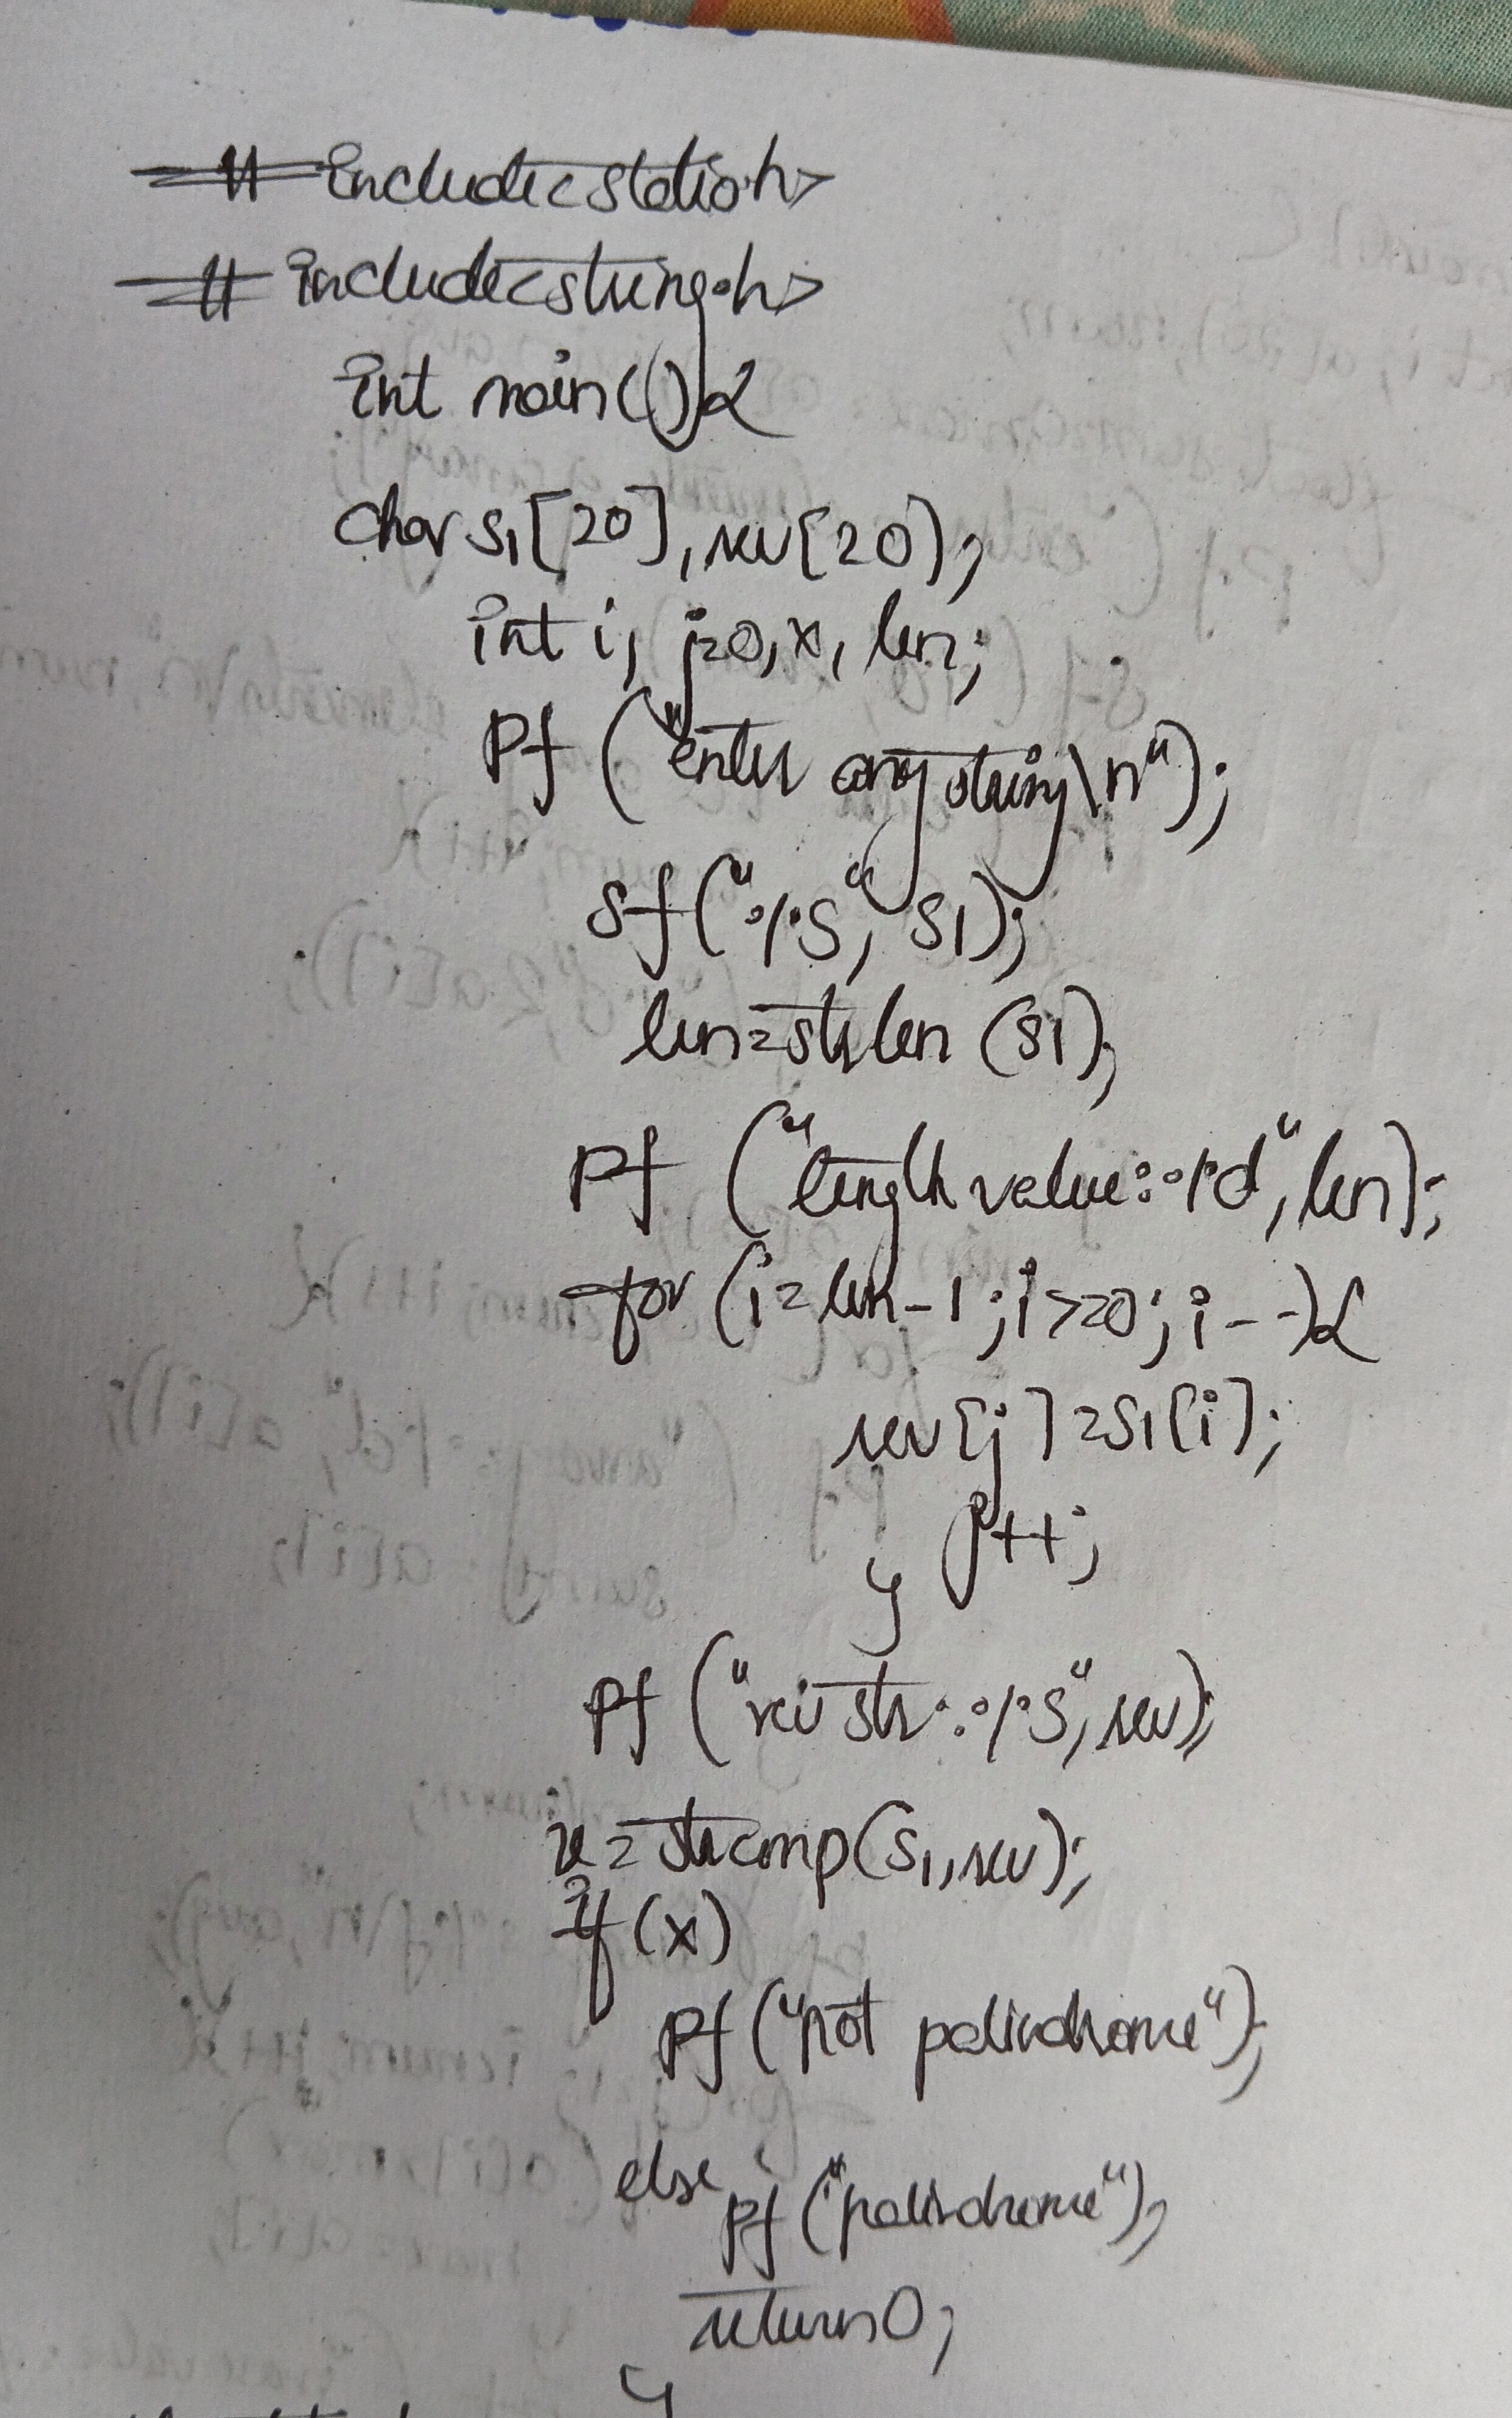 #include<stdio.h>
#include<string.h>
int main(){
char s1[20],rev[20];
int i, j=0,x, len;
pf ("enter any string\n");
sf("%s", s1);
len=strlen (s1);
pf ("length value:%d", len);
for (i=len-1;i>=0;i--){
rev[j]=s1[i];
j++;
}
pf ("rev str:%s", rev);
x=strcmp(s1,rev);
if (x)
pf("not palindrome");
else pf("palindrome");
return 0;
}